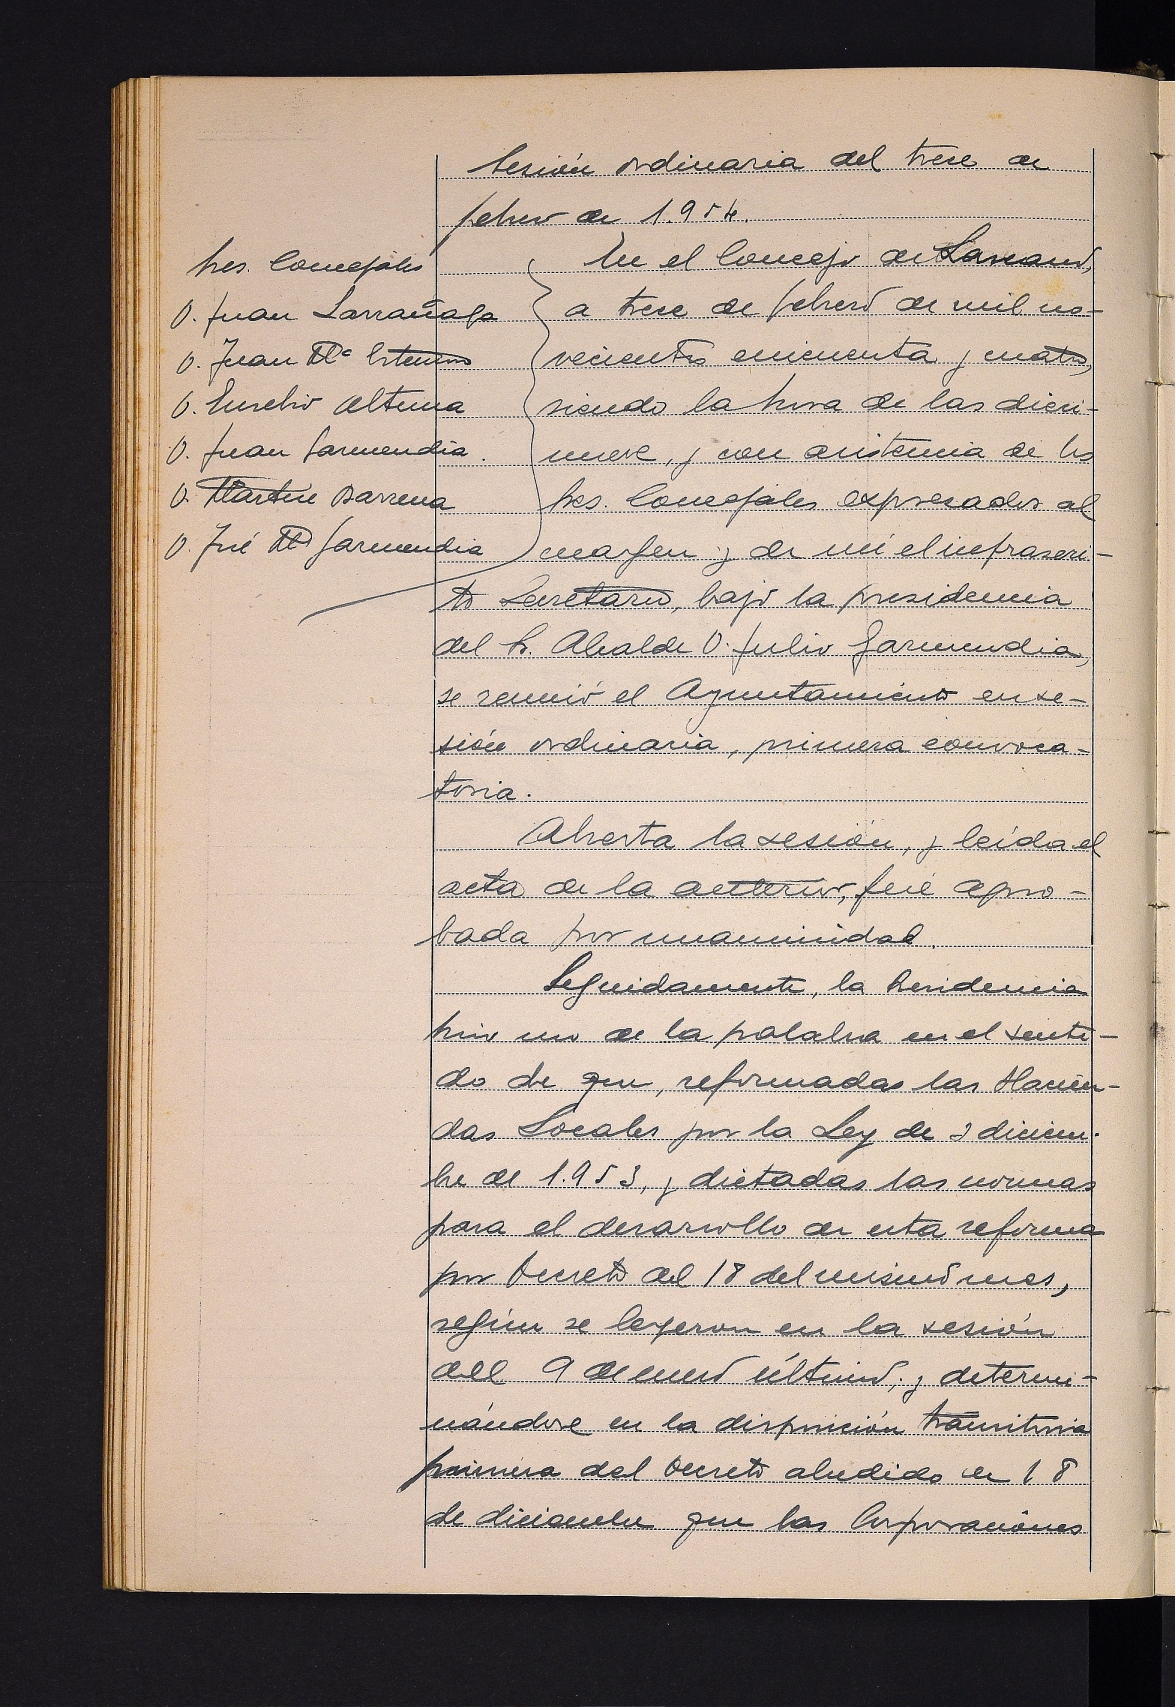 Sesión ordinaria del trece de
febrero de 1.954.
Sres. Concejales
D. Juan Larrañaga
D. Juan Mª
D. Eusebio Altuna
D. Juan Garmendia.
D. Martin Barrena
D. José Mª Garmendia
En el Concejo de
a trece de febrero de mil no-
vecientos cincuenta y cuatro,
siendo la hora de las dieci-
nueve, y con asistencia de los
Sres. Concejales expresados al
margen y de mi el infrascri-
to Secretario, bajo la presidencia
del Sr. Alcalde D. Julio Garmendia,
se reunió el Ayuntamiento en se-
sión ordinaria, primera convoca-
toria.
Abierta la sesión, y leída el
acta de la anterior, fué apro-
bada por unanimidad.
Seguidamente, la Presidencia
hizo uso de la palabra en el senti-
do de que, reformadas las Hacien-
das Locales por la Ley de 3 diciem-
bre de 1.953, y dictadas las normas
para el desarrollo de esta reforma
por Decreto del 18 del mismo mes,
según se leyeron en la sesión
del 9 de enero último; y determi-
nándose en la disposición transitoria
primera del Decreto aludido de 18
de diciembre que las Corporaciones